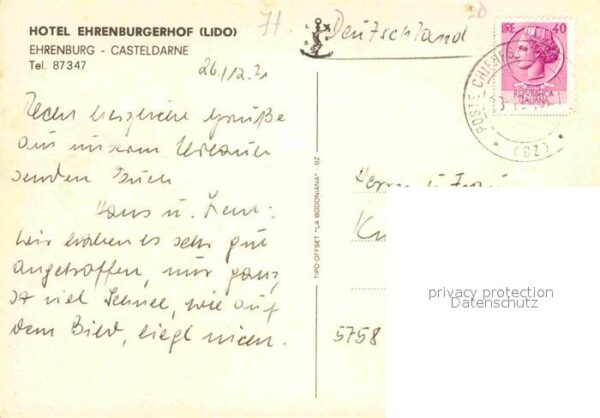 HOTEL EHRENBURGERHOF (LIDO)
EHRENBURG - CASTELDARNE
Tel. 87347
26./12.
Recht herzliche Grüße
aus unserem Urlaub
senden Euch
Hans u.
Wir haben es sehr gut
angetroffen, nur ganz
so viel Schnee, wie auf
dem Bild, liegt nicht.
TIPO-OFFSET "LA BODONIANA" - BZ
71.
Deutschland
LIRE 40
REPVBBLICA
ITALIANA
* POSTE CHIENES
(BZ) *
Herrn u. Frau
5758
privacy protection
Datenschutz